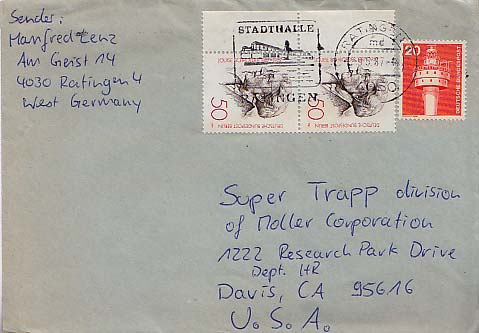 Sender:
Manfred Lenz
Am Geist 14
4030 Ratingen 4
West Germany
STADTHALLE
RATINGEN
me
50
DEUTSCHE BUNDESPOST BERLIN
50
DEUTSCHE BUNDESPOST BERLIN
20
DEUTSCHE BUNDESPOST
Super Trapp division
of Moller Corporation
1222 Research Park Drive
Dept. HR
Davis, CA 95616
U.S.A.